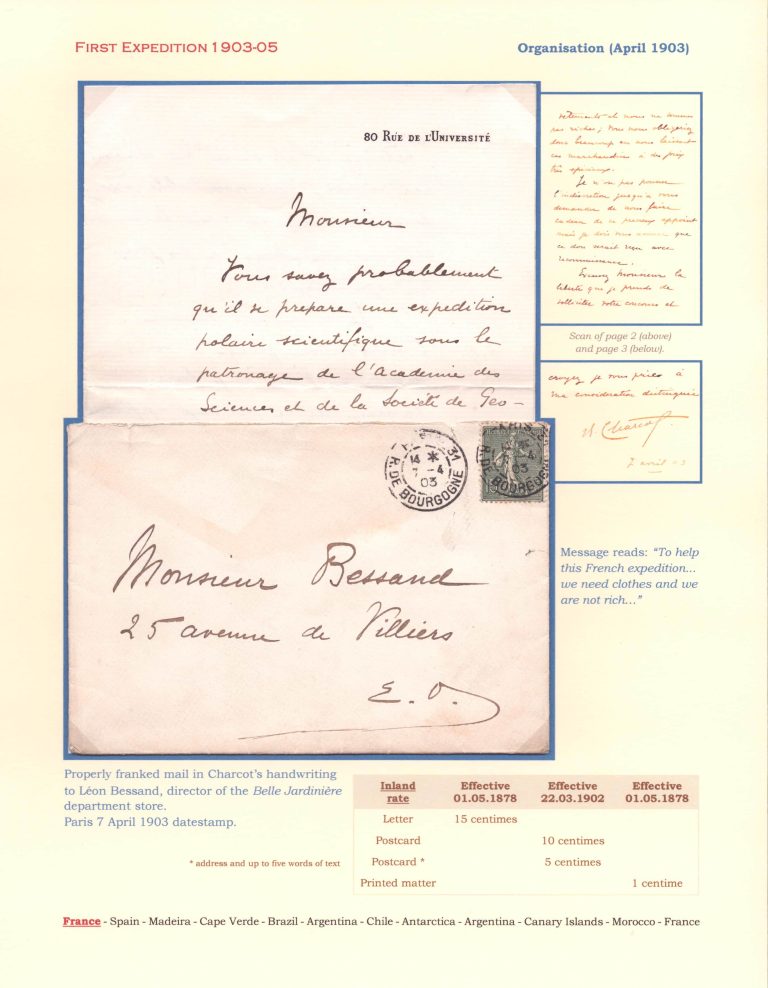 FIRST EXPEDITION 1903-05
Organisation (April 1903)
80 RUE DE L'UNIVERSITÉ
Monsieur
Vous savez probablement
qu'il se prepare une expedition
polaire scientifique sous le
patronage de l'Academie des
Sciences et de la Société de Géo-
vetements et nous ne sommes
pas riches; Vous nous obligeriez
donc beaucoup en nous laissant
ces marchandises à des prix
très spéciaux.
Je n'ose pas pousser
l'indiscretion jusqu'à vous
demander de nous faire
cadeau de ce precieux appoint
mais je dois vous que
ce don serait reçu avec
reconnaissance.
Excusez Monsieur la
liberté que je prends de
solliciter votre concours et
Scan of page 2 (above)
and page 3 (below).
croyez je vous prie à
ma consideration distinguée
Charcot
7 avril 03
31
14 *
7 -4
03
R. DE BOURGOGNE
03
R. DE BOURGOGNE
15
Monsieur Bessand
25 avenue de Villiers
E. V.
Message reads: “To help
this French expedition...
we need clothes and we
are not rich...”
Properly franked mail in Charcot's handwriting
to Léon Bessand, director of the Belle Jardinière
department store.
Paris 7 April 1903 datestamp.
* address and up to five words of text
Inland rate Effective 01.05.1878 Effective 22.03.1902 Effective 01.05.1878
Letter 15 centimes
Postcard 10 centimes
Postcard * 5 centimes
Printed matter 1 centime
France - Spain - Madeira - Cape Verde - Brazil - Argentina - Chile - Antarctica - Argentina - Canary Islands - Morocco - France